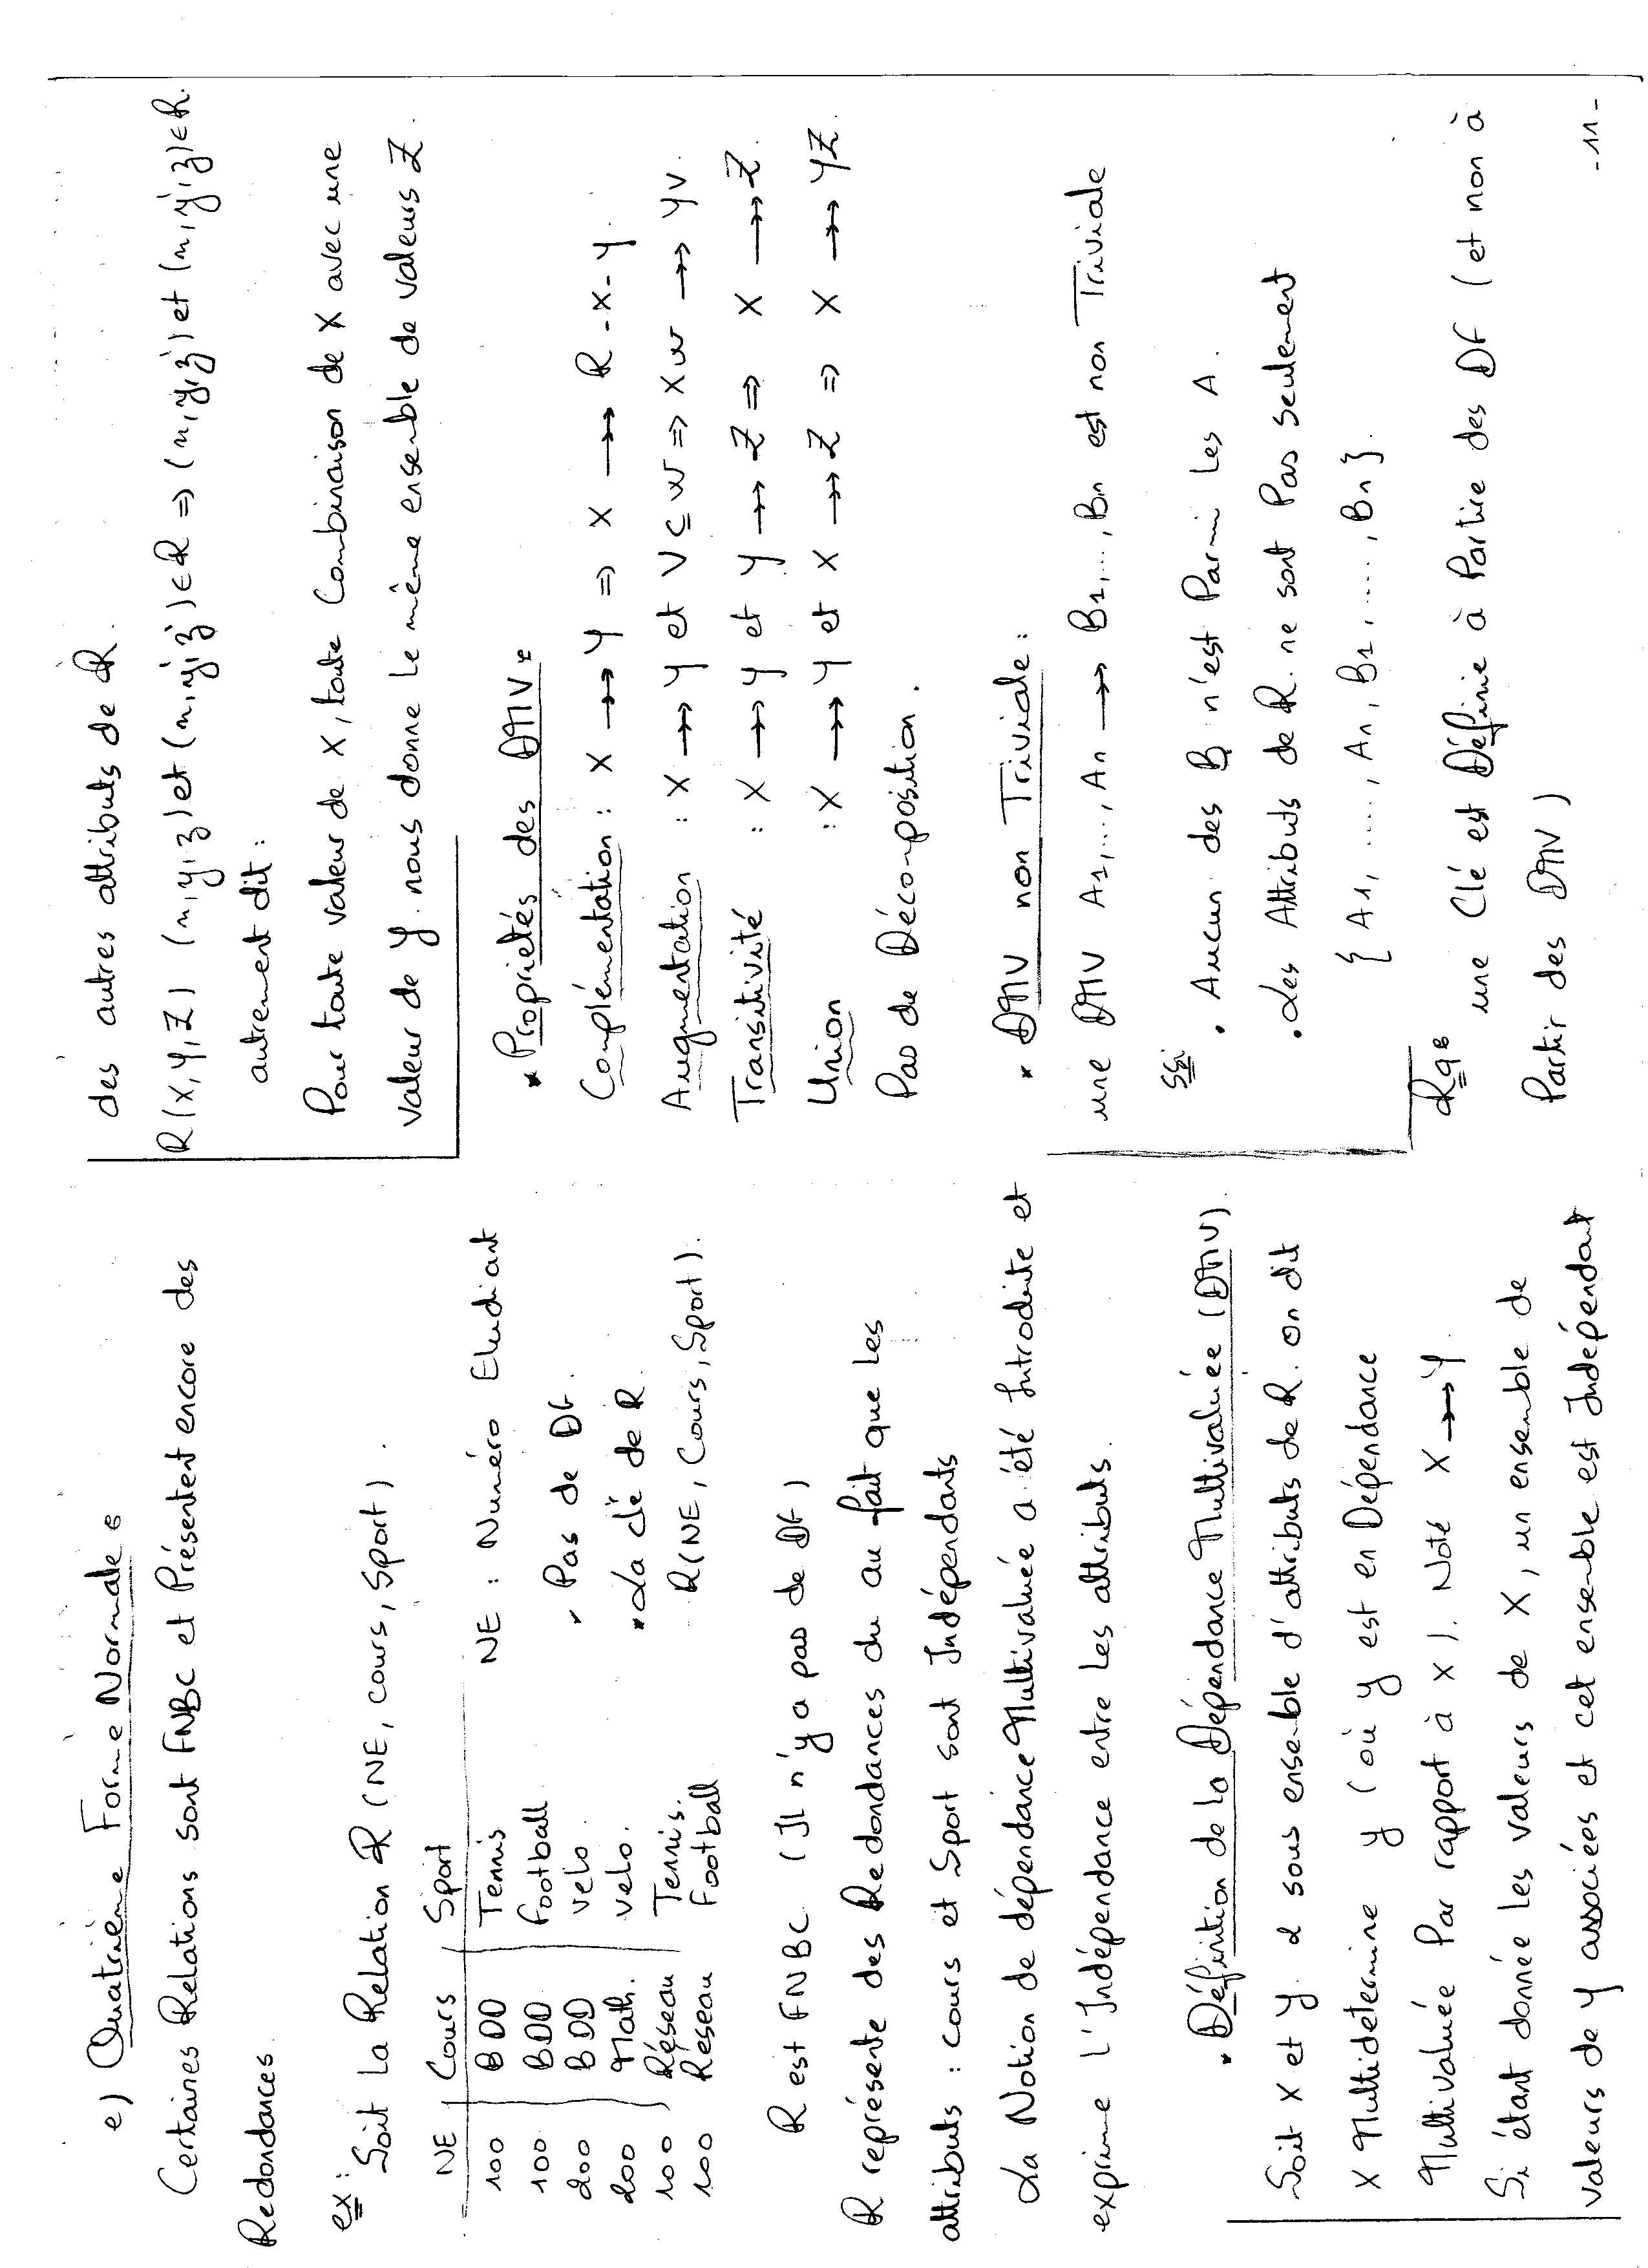 e) Quatrième Forme Normale :
Certaines Relations sont FNBC et Présentent encore des
Redondances.
ex : Soit La Relation R (NE, cours, Sport).
NE Cours Sport
100 BDD Tennis
100 BDD Football
200 BDD velo.
200 Math. velo.
100 Réseau Tennis.
100 Reseau Football
NE : Numéro Etudiant
• Pas de DF.
• La clé de R
R(NE, Cours, Sport).
R est FNBC (Il n'y a pas de DF)
R représente des Redondances du au fait que Les
attributs : cours et Sport sont Indépendants
La Notion de dépendance Multivaluée a été Introduite et
exprime l'Indépendance entre Les attributs.
• Définition de la Dépendance Multivaluée (DMV).
Soit X et Y 2 sous ensemble d'attributs de R. on dit
X Multidetermine Y (où Y est en Dépendance
Multivaluée Par rapport à X). Noté X →→ Y
Si étant donnée Les valeurs de X, un ensemble de
valeurs de Y associées et cet ensemble est Indépendant
des autres attributs de R.
R(X,Y,Z) (x,y,z) et (x,y',z') ∈ R => (x,y,z') et (x,y',z) ∈ R.
autrement dit :
Pour toute valeur de X, toute Combinaison de X avec une
valeur de Y nous donne Le même ensemble de valeurs Z.
* Propriétés des DMV :
Complémentation : X →→ Y => X →→ R - X - Y.
Augmentation : X →→ Y et V ⊆ W => XW →→ YV.
Transitivité : X →→ Y et Y →→ Z => X →→ Z.
Union : X →→ Y et X →→ Z => X →→ YZ.
Pas de Décomposition.
* DMV non Triviale :
une DMV A1,...,An →→ B1,...,Bn est non Triviale
ssi
• Aucun des B n'est Parmi Les A.
• des Attributs de R. ne sont Pas seulement
{ A1, ...., An, B1, ...., Bn }.
Rq : une Clé est Définie à Partire des DF (et non à
Partir des DMV)
- 11 -